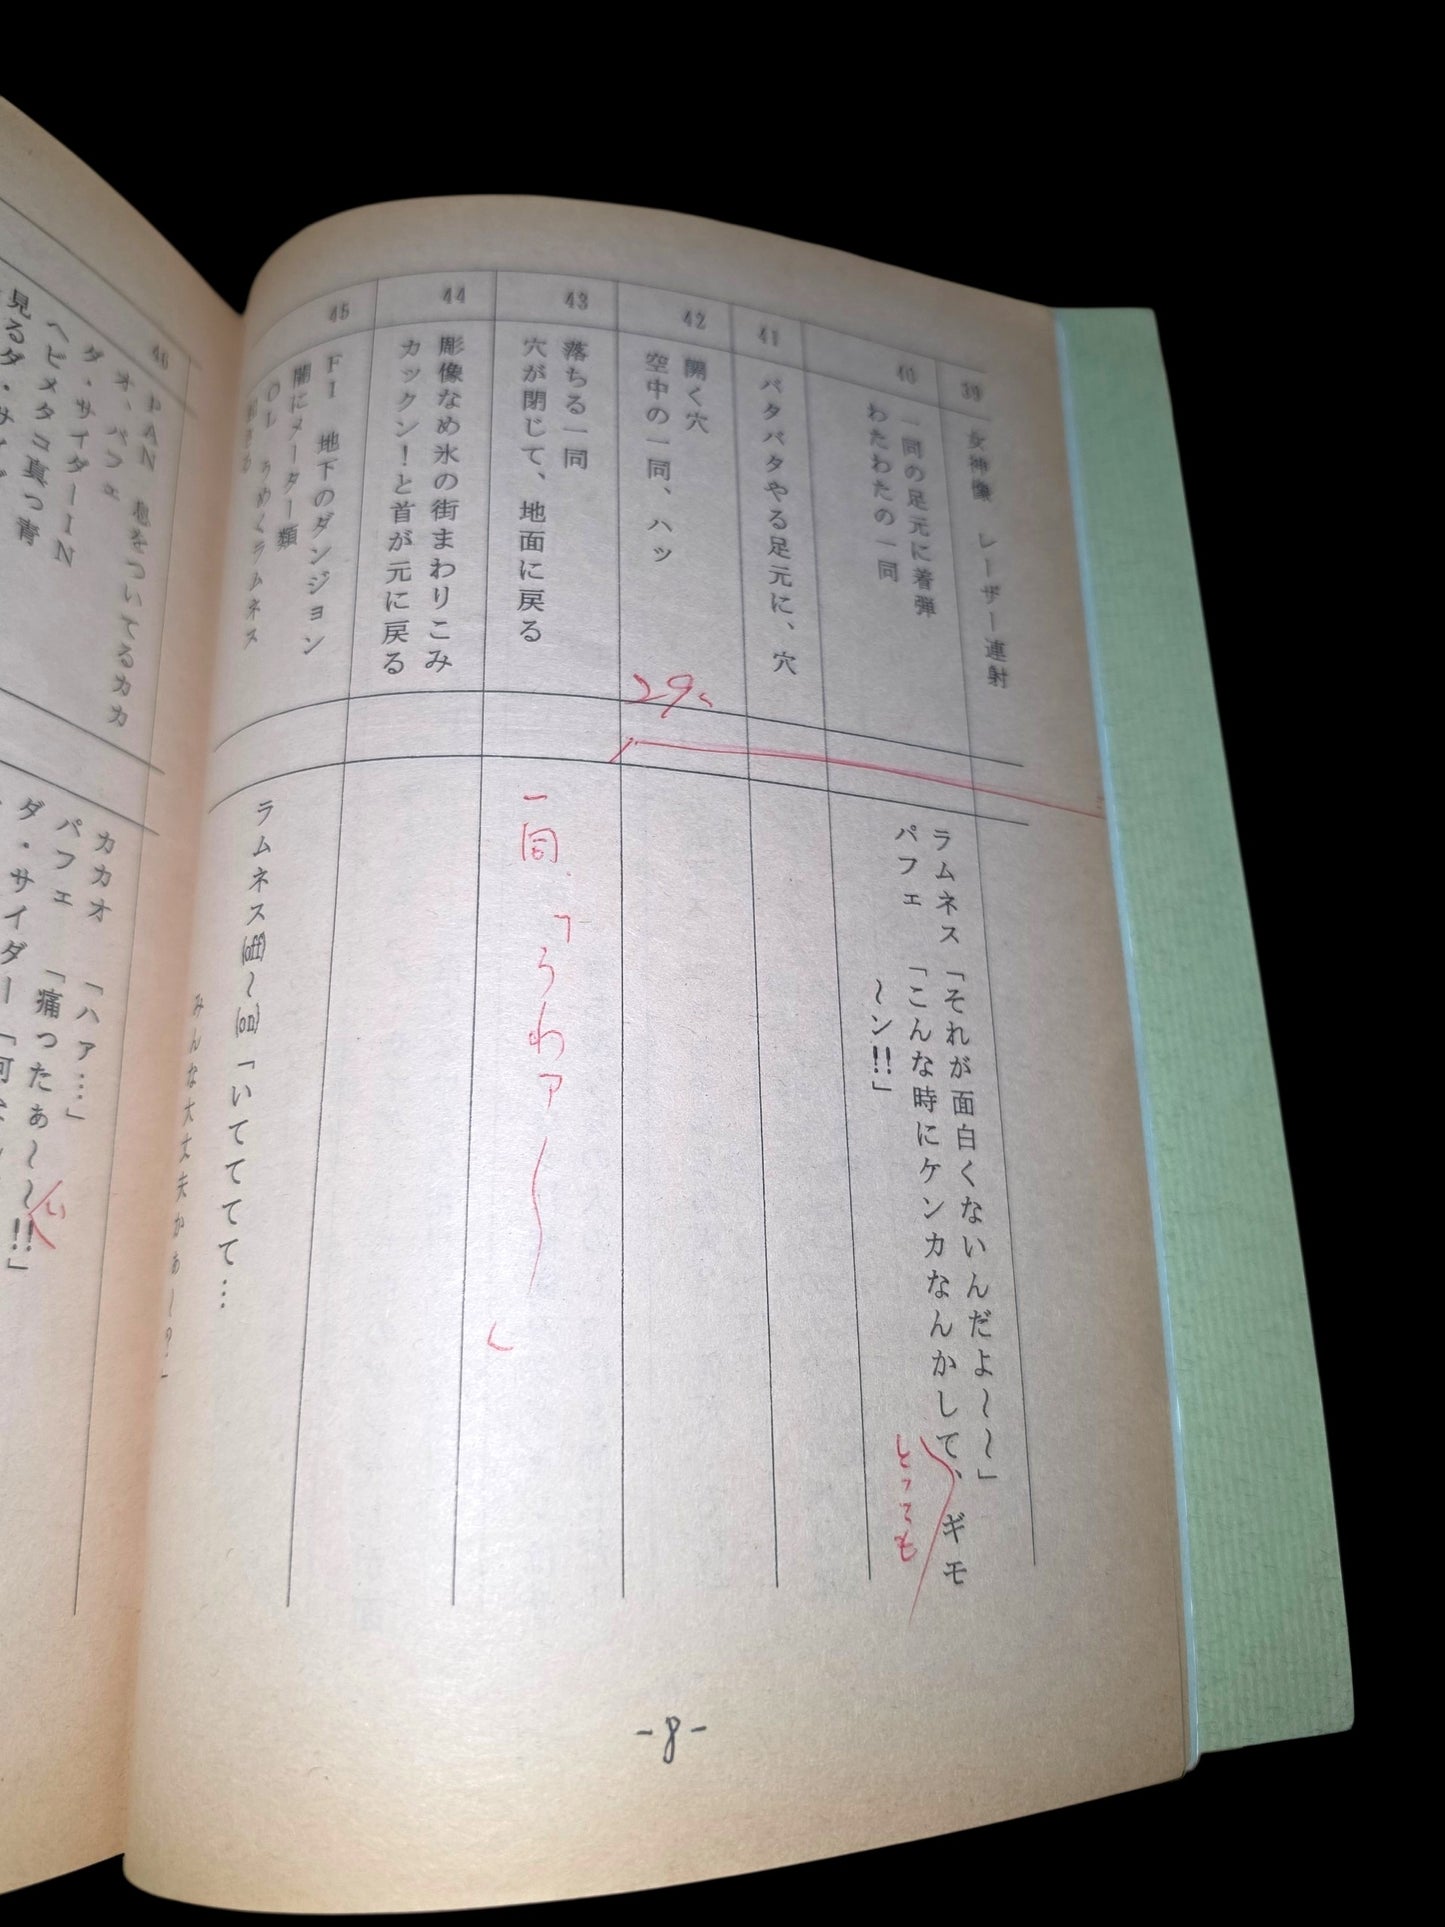 39
女神像　レーザー連射
40
一同の足元に着弾
わたわたの一同
ラムネス「それが面白くないんだよ～～」
パフェ「こんな時にケンカなんかして、ギモ
～ン!!」
とっても
41
バタバタやる足元に、穴
42
開く穴
空中の一同、ハッ
29
43
落ちる一同
穴が閉じて、地面に戻る
一同「うわァ～」
44
彫像なめ氷の街まわりこみ
カックン！と首が元に戻る
45
FI　地下のダンジョン
闇にメーター類
OL　うめくラムネス
起きる
ラムネス(off)～(on)「いてててて…
みんな大丈夫かぁ～?」
-8-
46
PAN　息をついてるカカ
オ、パフェ
ダ・サイダーIN
ヘビメタコ真っ青
見るダ・サイダ
カカオ「ハァ…」
パフェ「痛ったぁ～～!!」
い
ダ・サイダー「何